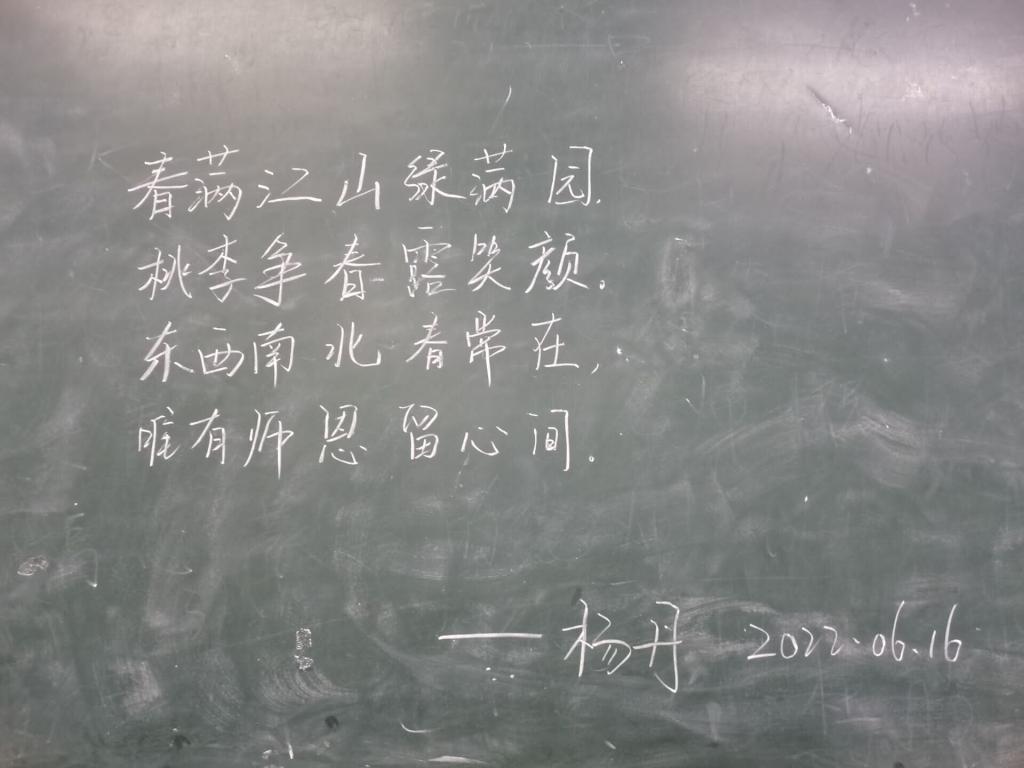 春满江山绿满园.
桃李争春露笑颜。
东西南北春常在,
唯有师恩留心间。
——杨丹 2022.06.16